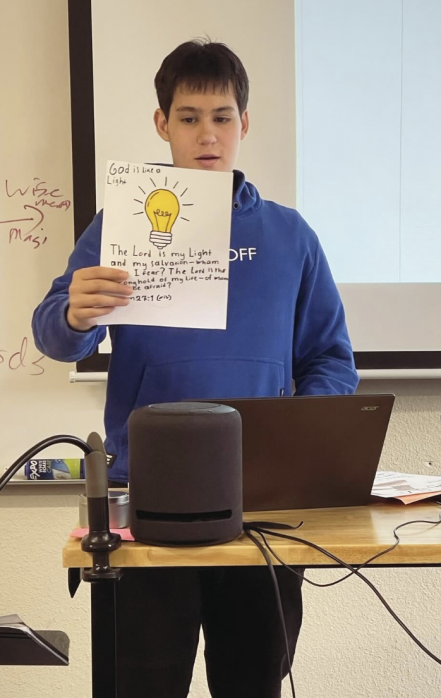 God is like a
Light
The Lord is my Light
and my salvation-whom
I fear? The Lord is the
stronghold of my life-of whom
be afraid?
27:1 (NIV)
OFF
Wise
Magi
acer
EXPO